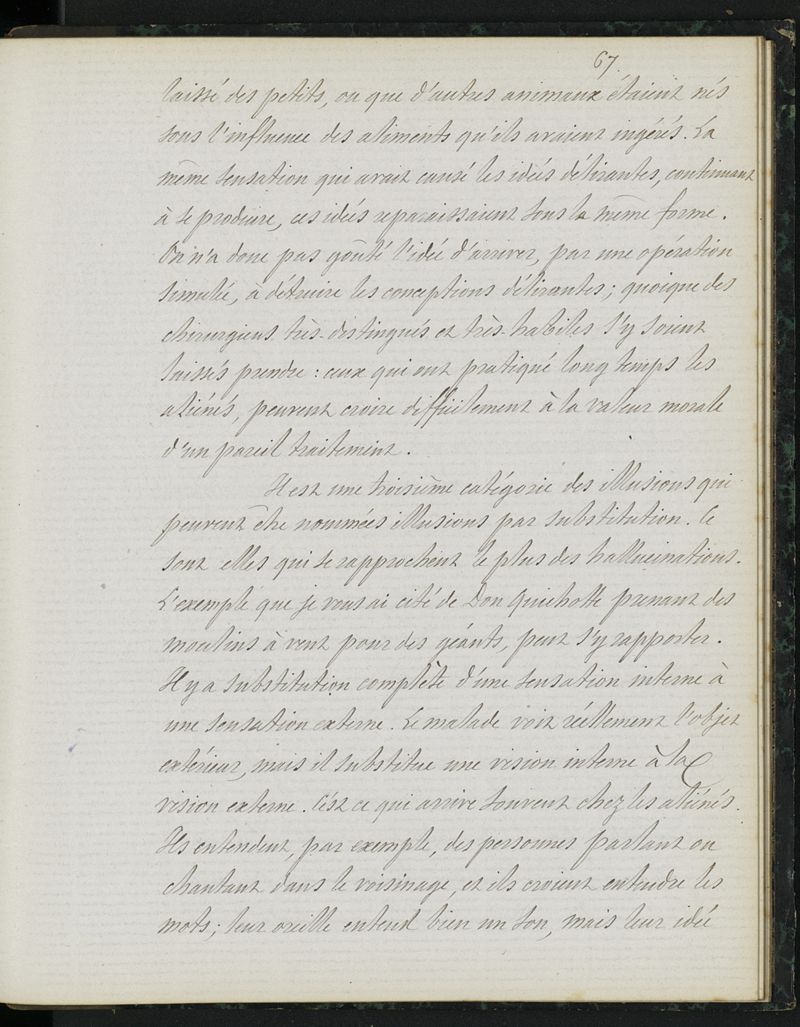 67.
laissé des petits, ou que d'autres animaux étaient nés
sous l'influence des aliments qu'ils avaient ingérés. La
même sensation qui avait causé les idées délirantes, continuant
à se produire, ces idées reparaissaient sous la même forme.
On n'a donc pas goûté l'idée d'arriver, par une opération
simulée, à détruire les conceptions délirantes; quoique des
chirurgiens très-distingués et très-habiles s'y soient
laissés prendre: ceux qui ont pratiqué longtemps les
aliénés, peuvent croire difficilement à la valeur morale
d'un pareil traitement.
Il est une troisième catégorie des illusions qui
peuvent être nommées illusions par substitution. Ce
sont elles qui se rapprochent le plus des hallucinations.
L'exemple que je vous ai cité de Don Quichotte prenant des
moulins à vent pour des géants, peut s'y rapporter.
Il y a substitution complète d'une sensation interne à
une sensation externe. Le malade voit réellement l'objet
extérieur, mais il substitue une vision interne à la
vision externe. C'est ce qui arrive souvent chez les aliénés.
Ils entendent, par exemple, des personnes parlant ou
chantant dans le voisinage, et ils croient entendre les
mots; leur oreille entend bien un son, mais leur idée